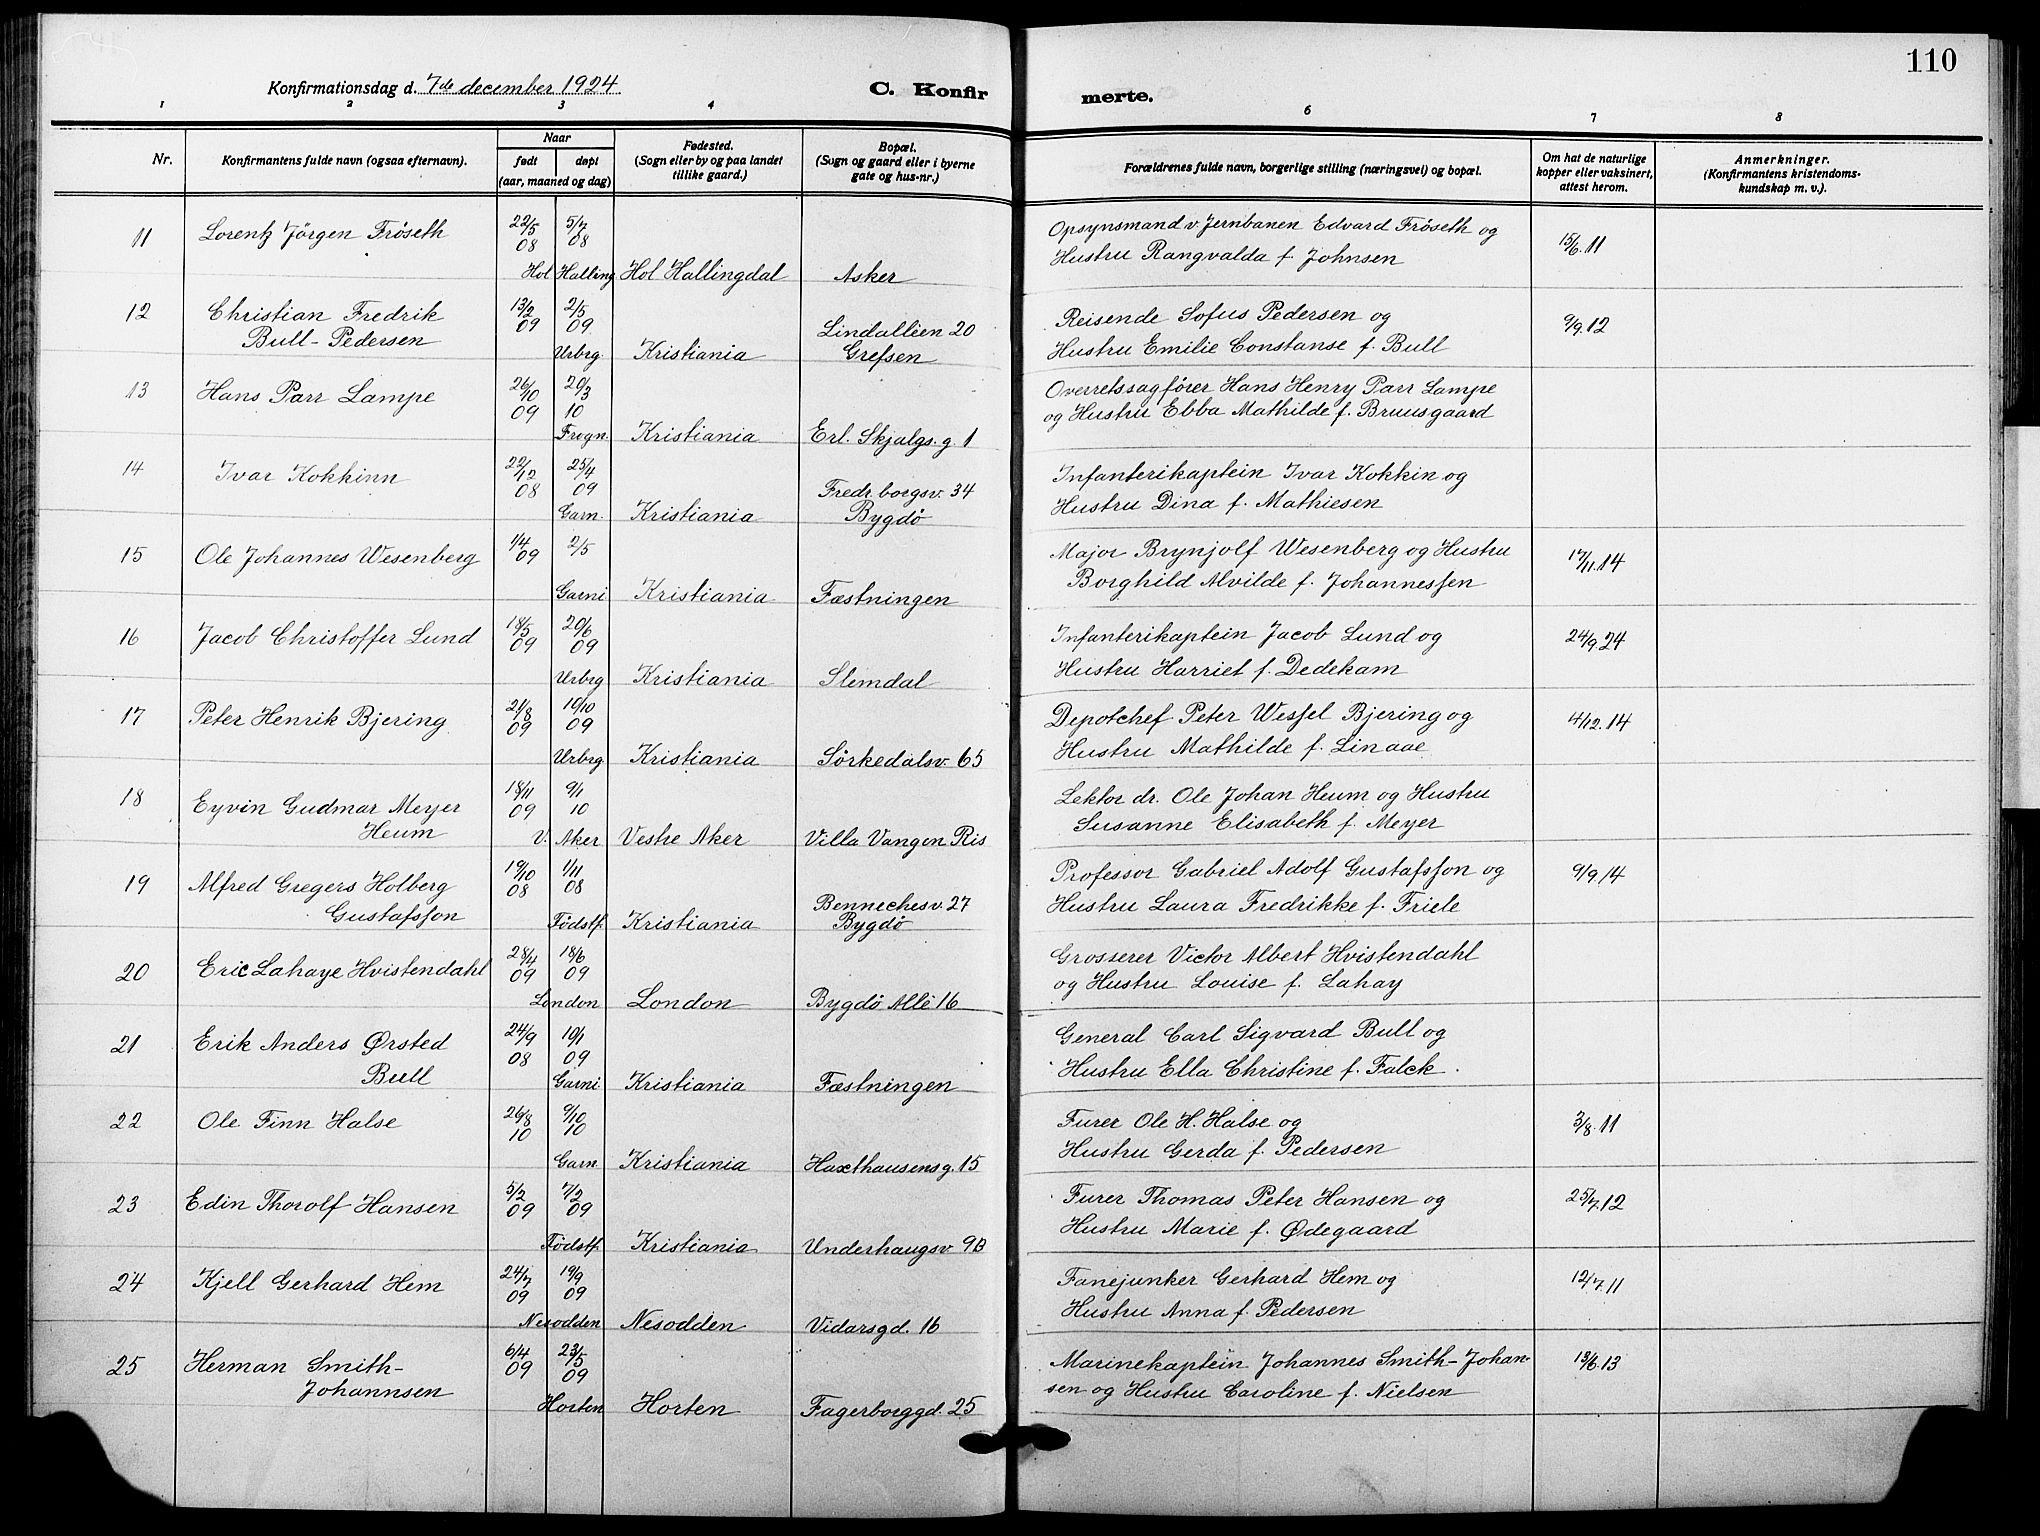 110
Konfirmationsdag d. 7de december 1924
C. Konfirmerte.
1 2 3 4 6 7 8
Nr.
Konfirmantens fulde navn (ogsaa efternavn).
Naar
født døpt
(aar, maaned og dag)
Fødested.
(Sogn eller by og paa landet
tillike gaard.)
Bopæl.
(Sogn og gaard eller i byerne
gate og hus-nr.)
Forældrenes fulde navn, borgerlige stilling (næringsvei) og bopæl.
Om hat de naturlige
kopper eller vaksinert,
attest herom.
Anmerkninger.
(Konfirmantens kristendoms-
kundskap m. v.).
11 Lorentz Jörgen Fröseth 22/5 08 5/7 08 Opsynsmand v Jernbanen Edvard Fröseth og 15/6.11
Hol Halling Hol Hallingdal Asker Hustru Rangvalda f. Johnsen
12 Christian Fredrik 13/2 09 2/5 09 Lindallien 20 Reisende Sofus Pedersen og 9/9.12
Bull-Pedersen Urbrg. Kristiania Grefsen Hustru Emilie Constanse f. Bull
13 Hans Parr Lampe 26/10 09 20/3 10 Overretssagförer Hans Henry Parr Lampe
Fregn. Kristiania Erl. Skjalgs. g. 1 og Hustru Ebba Mathilde f. Bruusgaard
14 Ivar Kokkinn 22/12 08 25/4 09 Fredr. borgsv. 34 Infanterikaptein Ivar Kokkin og
Garn. Kristiania Bygdö Hustru Dina f. Mathiesen
15 Ole Johannes Wesenberg 1/4 09 2/5 Major Brynjolf Wesenberg og Hustru 17/11.14
Garni Kristiania Fæstningen Borghild Alvilde f. Johannessen
16 Jacob Christoffer Lund 18/5 09 20/6 09 Infanterikaptein Jacob Lund og 24/9.24
Urbrg Kristiania Slemdal Hustru Harriet f. Dedekam
17 Peter Henrik Bjering 21/8 09 10/10 09 Depotchef Peter Wessel Bjering og 4/12.14
Urbrg Kristiania Sörkedalsv. 65 Hustru Mathilde f. Linaae
18 Eyvin Gudmar Meyer 18/11 09 9/1 10 Lektor dr. Ole Johan Heum og Hustru
Heum V. Aker Vestre Aker Villa Vangen Ris Susanne Elisabeth f. Meyer
19 Alfred Gregers Holberg 19/10 08 1/11 08 Bennechesv. 27 Professor Gabriel Adolf Gustafsson og 9/9.14
Gustafsson Födstf. Kristiania Bygdö Hustru Laura Fredrikke f. Friele
20 Eric Lahaye Hvistendahl 28/4 09 18/6 09 Grosserer Victor Albert Hvistendahl
London London Bygdö Allé 16 og Hustru Louise f. Lahay
21 Erik Anders Ørsted 24/9 08 10/1 09 General Carl Sigvard Bull og
Bull Garni Kristiania Fæstningen Hustru Ella Christine f. Falck.
22 Ole Finn Halse 26/8 10 9/10 10 Furer Ole H. Halse og 3/8.11
Garn. Kristiania Haxthausensg. 15 Hustru Gerda f. Pedersen
23 Edin Thorolf Hansen 5/2 09 7/2 09 Furer Thomas Peter Hansen og 25/7.12
Födstf. Kristiania Underhaugsv. 9B Hustru Marie f. Ødegaard
24 Kjell Gerhard Hem 24/7 09 19/9 09 Fanejunker Gerhard Hem og 12/7.11
Nesodden Nesodden Vidarsgd. 16 Hustru Anna f. Pedersen
25 Herman Smith- 6/4 09 23/5 09 Marinekaptein Johannes Smith-Johan- 13/6.13
Johannsen Horten Horten Fagerborggd. 25 sen og Hustru Caroline f. Nielsen